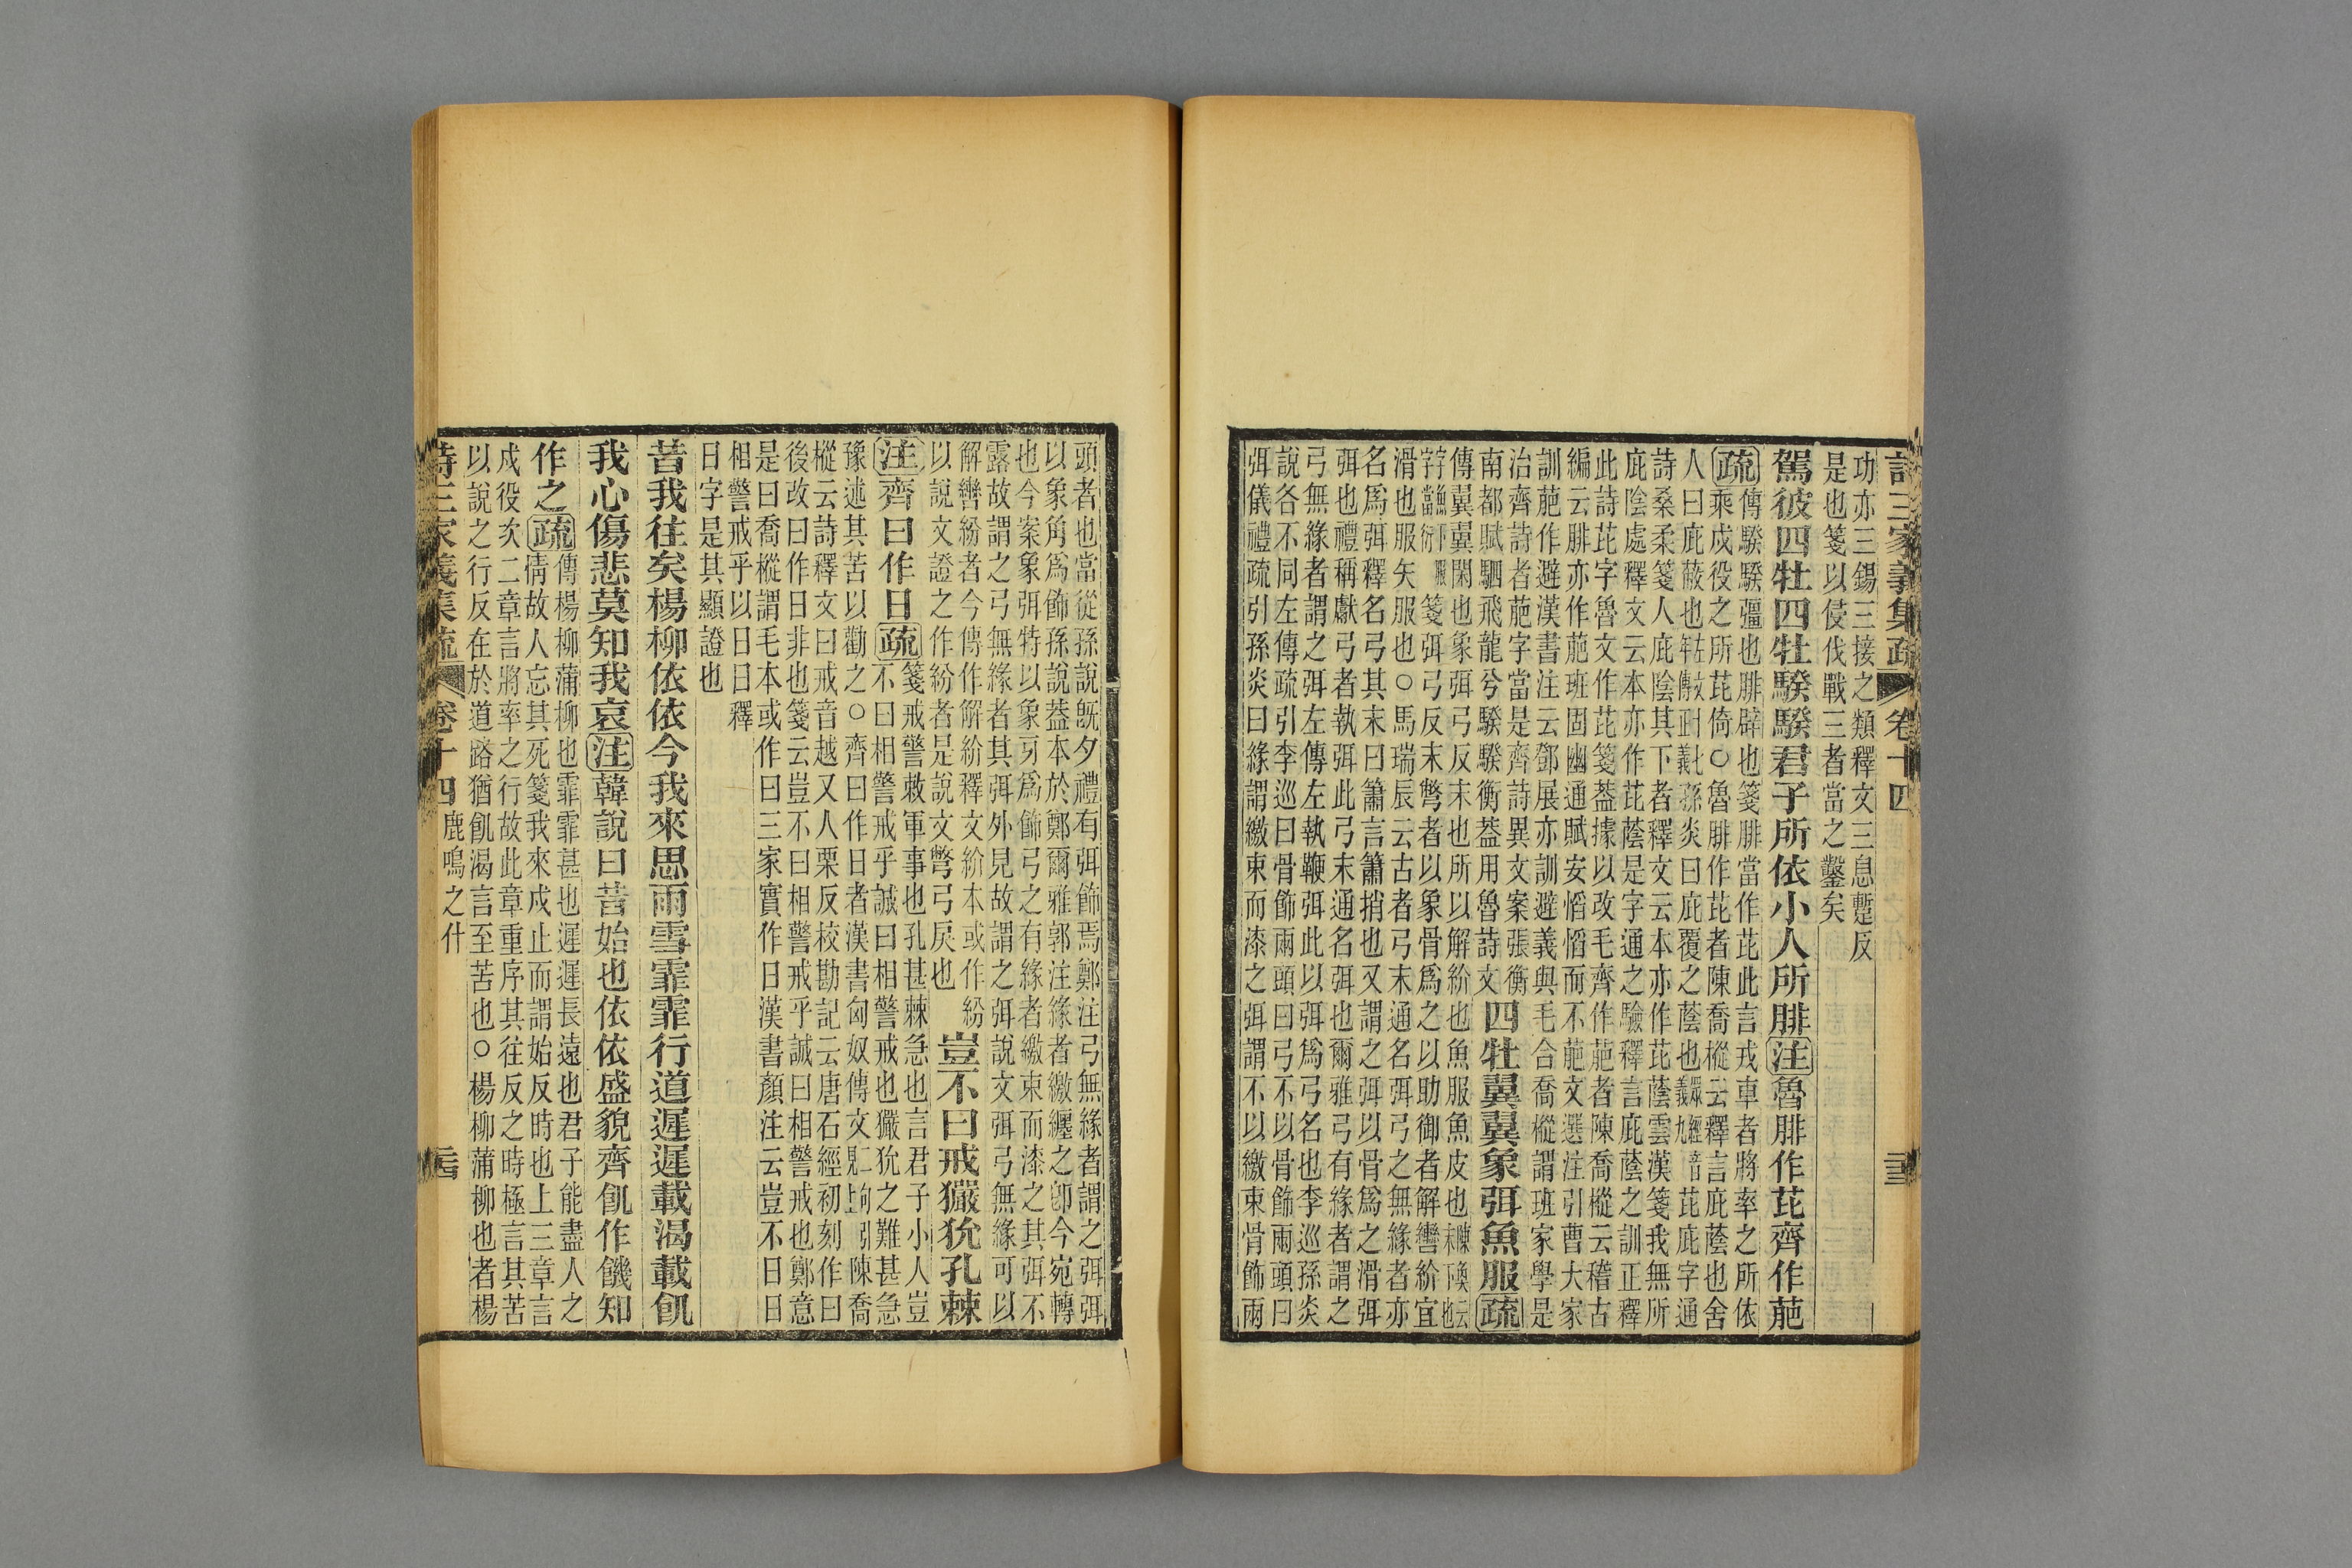 詩三家義集疏 卷十四
功亦三錫三接之類釋文三息蹔反
是也箋以侵伐戰三者當之鑿矣
駕彼四牡四牡騤騤君子所依小人所腓注魯腓作芘齊作萉
疏傳騤騤彊也腓辟也箋腓當作芘此言戎車者將率之所依
乘戍役之所芘倚○魯腓作芘者陳喬樅云釋言庇蔭也舍
人曰庇蔽也孫炎曰庇覆之蔭也芘庇字通
詩桑柔箋人庇陰其下者釋文云本亦作芘蔭雲漢箋我無所
庇陰處釋文云本亦作芘蔭是字通之驗釋言庇蔭之訓正釋
此詩芘字魯文作芘箋葢據以改毛齊作萉者陳喬樅云稽古
編云腓亦作萉班固幽通賦安慆慆而不萉文選注引曹大家
訓萉作避漢書注云鄧展亦訓避義與毛合喬樅謂班家學是
治齊詩者萉字當是齊詩異文案張衡
南都賦駟飛龍兮騤騤衡葢用魯詩文
四牡翼翼象弭魚服疏
傳翼翼閑也象弭弓反末也所以解紛也魚服魚皮也
箋弭弓反末彆者以象骨爲之以助御者解轡紛宜
滑也服矢服也○馬瑞辰云古者弓末通名弭弓之無緣者亦
名爲弭釋名弓其末曰簫言簫捎也又謂之弭以骨爲之滑弭
弭也禮稱獻弓者執弭此弓末通名弭也爾雅弓有緣者謂之
弓無緣者謂之弭左傳左執鞭弭此以弭爲弓名也李巡孫炎
說各不同左傳疏引李巡曰骨飾兩頭曰弓不以骨飾兩頭曰
弭儀禮疏引孫炎曰緣謂繳束而漆之弭謂不以繳束骨飾兩
頭者也當從孫說旣夕禮有弭飾焉鄭注弓無緣者謂之弭弭
以象角爲飾孫說葢本於鄭爾雅郭注緣者繳纏之卽今宛轉
也今案象弭特以象牙爲飾弓之有緣者繳束而漆之其弭不
露故謂之弓無緣者其弭外見故謂之弭說文弭弓無緣可以
解轡紛者今傳作解紛釋文紒本或作紛
以說文證之作紛者是說文彆弓戾也
豈不曰戒玁狁孔棘
注齊曰作日疏箋戒警敕軍事也孔甚棘急也言君子小人豈
不曰相警戒乎誠曰相警戒也玁狁之難甚急
豫述其苦以勸之○齊曰作日者漢書匈奴傳文陳喬
樅云詩釋文曰戒音越又人栗反校勘記云唐石經初刻作曰
後改曰作日非也箋云豈不曰相警戒乎誠曰相警戒也鄭意
是曰喬樅謂毛本或作曰三家實作日漢書顏注云豈不日日
相警戒乎以日日釋
日字是其顯證也
昔我往矣楊柳依依今我來思雨雪霏霏行道遲遲載渴載飢
我心傷悲莫知我哀注韓說曰昔始也依依盛貌齊飢作饑知
作之疏傳楊柳蒲柳也霏霏甚也遲遲長遠也君子能盡人之
情故人忘其死箋我來戍止而謂始反時也上三章言
戍役次二章言將率之行故此章重序其往反之時極言其苦
以說之行反在於道路猶飢渴言至苦也○楊柳蒲柳也者楊
詩三家義集疏 卷十四 鹿鳴之什